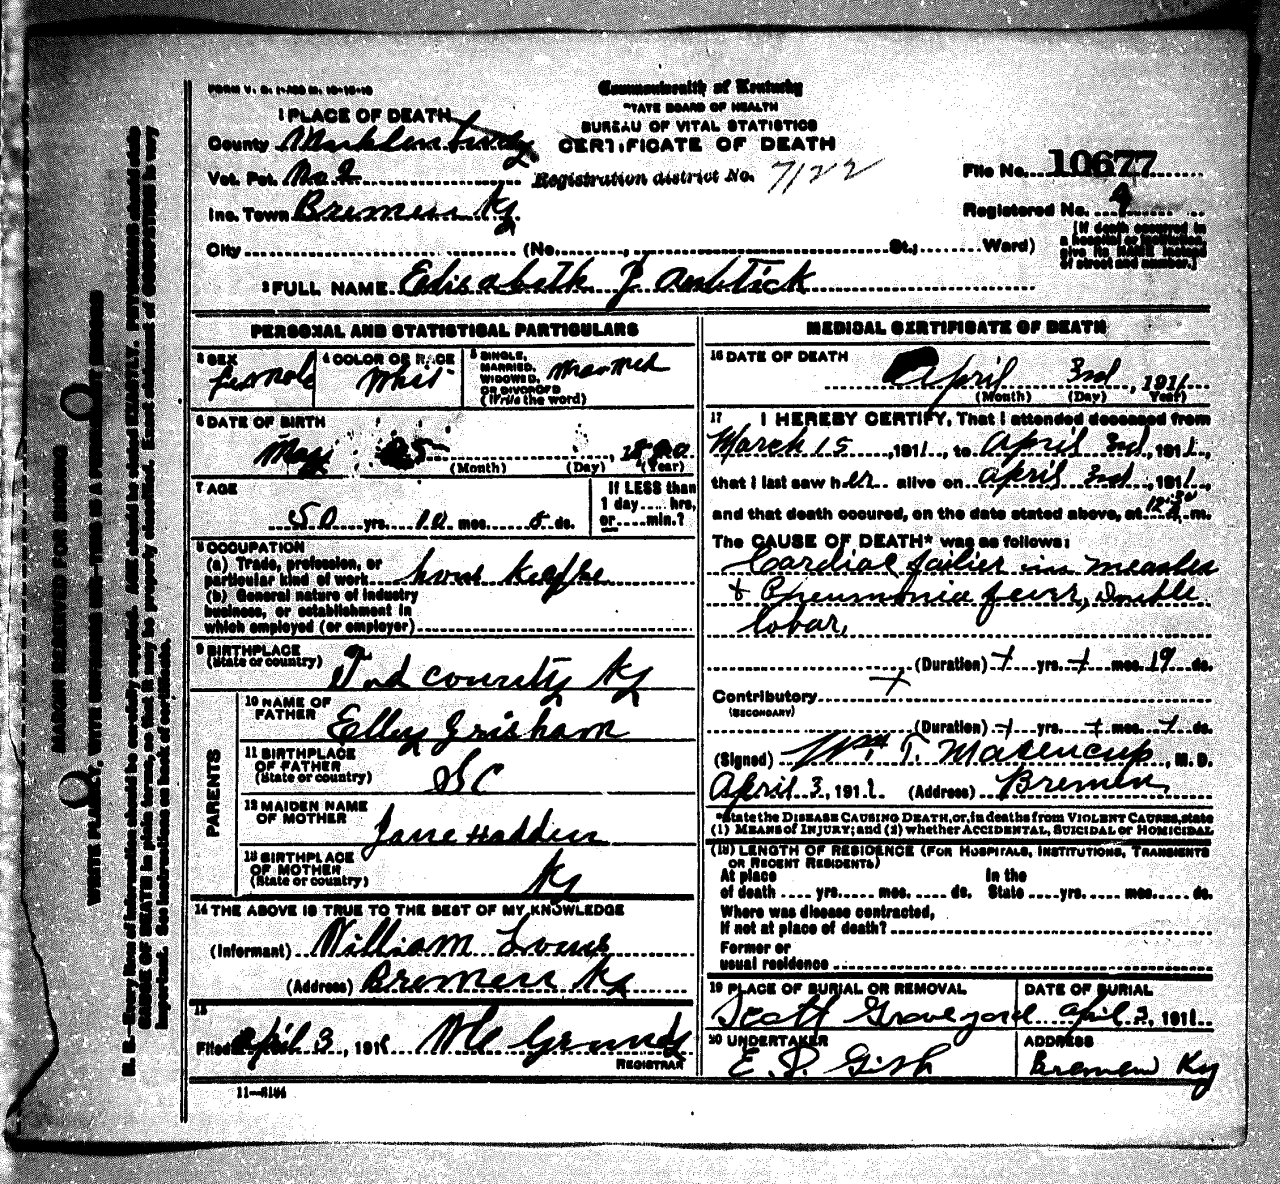 FORM V. S. 1-
Commonwealth of Kentucky
STATE BOARD OF HEALTH
BUREAU OF VITAL STATISTICS
CERTIFICATE OF DEATH
1 PLACE OF DEATH
County
Vot. Pct. No 2
Registration district No. 7122
File No. 10677
Inc. Town Bremen Ky
Registered No. 4
City (No. , St.; Ward)
[If death occurred in a hospital or institution, give its NAME instead of street and number.]
2 FULL NAME Elisabeth J
PERSONAL AND STATISTICAL PARTICULARS
3 SEX
female
4 COLOR OR RACE
Whit
5 SINGLE, MARRIED, WIDOWED, OR DIVORCED (Write the word)
Married
6 DATE OF BIRTH
May 25, 18
(Month) (Day) (Year)
7 AGE
50 yrs. 10 mos. ds.
If LESS than 1 day.... hrs, or.....min.?
8 OCCUPATION
(a) Trade, profession, or particular kind of work
(b) General nature of industry business, or establishment in which employed (or employer)
9 BIRTHPLACE
(State or country)
Tod county Ky
PARENTS
10 NAME OF FATHER
Elley Grisham
11 BIRTHPLACE OF FATHER
(State or country)
S C
12 MAIDEN NAME OF MOTHER
Jane Hadden
13 BIRTHPLACE OF MOTHER
(State or country)
Ky
14 THE ABOVE IS TRUE TO THE BEST OF MY KNOWLEDGE
(Informant) William
(Address) Bremen Ky
15
Filed April 3, 1911
REGISTRAR
11-
MEDICAL CERTIFICATE OF DEATH
16 DATE OF DEATH
April 3rd, 1911
(Month) (Day) Year)
17 I HEREBY CERTIFY, That I attended deceased from
March 15, 1911, to April 3rd, 1911,
that I last saw her alive on April 3rd, 1911,
and that death occured, on the date stated above, at 12:30 m.
The CAUSE OF DEATH* was as follows:
Cardiac failier in measles
+ Pneumonia fever, Double
lobar,
(Duration) + yrs. + mos. 19 ds.
Contributory +
(SECONDARY)
(Duration) + yrs. + mos. + ds.
(Signed) Wm T. , M. D.
April 3, 1911 (Address) Bremen
*State the DISEASE CAUSING DEATH, or, in deaths from VIOLENT CAUSES, state
(1) MEANS of INJURY; and (2) whether ACCIDENTAL, SUICIDAL or HOMICIDAL
(18) LENGTH OF RESIDENCE (FOR HOSPITALS, INSTITUTIONS, TRANSIENTS
OR RECENT RESIDENTS)
At place of death .... yrs. mos. ds. In the State yrs. mos. ds.
Where was disease contracted,
If not at place of death?
Former or
usual residence
19 PLACE OF BURIAL OR REMOVAL
Scott Graveyard
DATE OF BURIAL
April 3, 1911
20 UNDERTAKER
E. P. Gish
ADDRESS
Bremen Ky
MARGIN RESERVED FOR BINDING
WRITE PLAINLY, WITH
N. B.—Every item of information should be carefully supplied. AGE should be stated EXACTLY. PHYSICIANS should state
CAUSE OF DEATH in plain terms, so that it may be properly classified. Exact statement of OCCUPATION is very
important. See instructions on back of certificate.